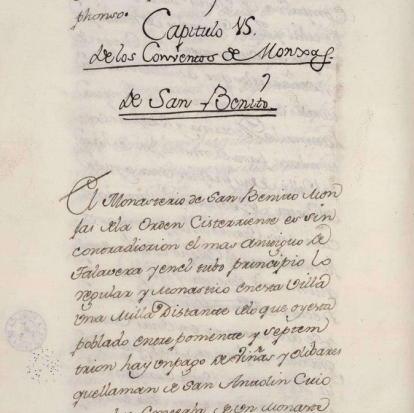 phonso.
Capitulo VS.
de los Conventos de Monxas.
de San Benito.
El Monasterio de San Benito Mon
jas de la Orden Cisterciense es sin
contradicion el mas antiguo de
Talavera y enel tubo principio lo
regular y Monastico en esta Villa
Una Milla Distante de lo que oy esta
poblado entre poniente y septem
trion hay un pago de Viñas y olibares
que llaman de San Antolin Cuio